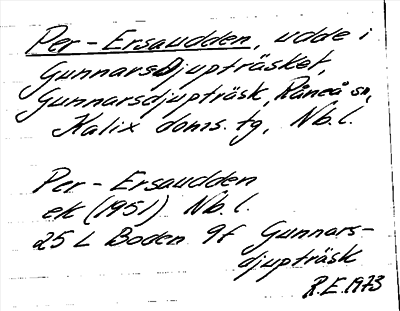 Per-Ersaudden, udde i
Gunnarsdjupträsket,
Gunnarsdjupträsk, Råneå sn,
Kalix doms. tg, Nb.l.
Per-Ersaudden
ek (1951) Nb.l.
25 L Boden 9f Gunnars-
djupträsk
R.E. 1973